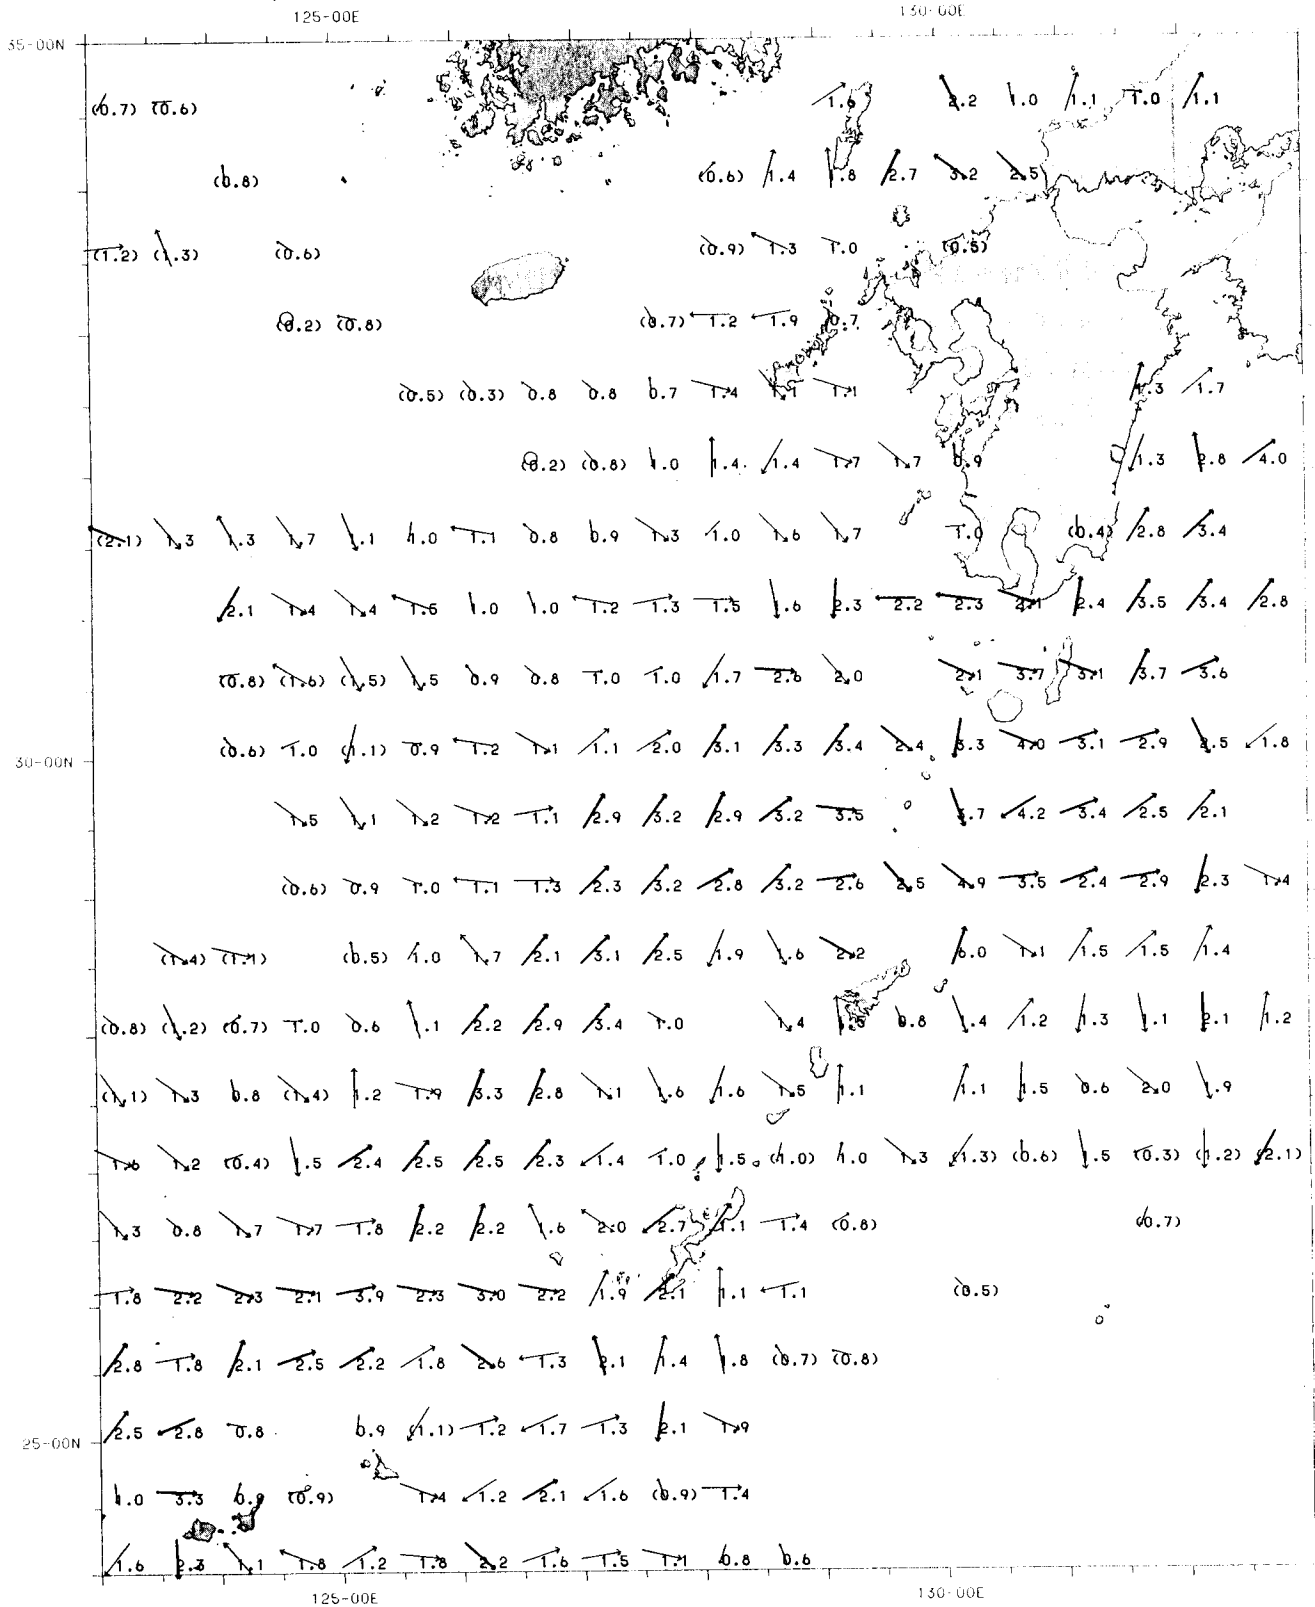 125-00E 130-00E
35-00N
(0.7) (0.6) 1.6 2.2 1.0 1.1 1.0 1.1
(0.8) (0.6) 1.4 1.8 2.7 3.2 2.5
(1.2) (1.3) (0.6) (0.9) 1.3 1.0 (0.5)
(0.2) (0.8) (0.7) 1.2 1.9 0.7
(0.5) (0.3) 0.8 0.8 0.7 1.4 1.1 1.1 1.3 1.7
(0.2) (0.8) 1.0 1.4 1.4 1.7 1.7 0.9 1.3 2.8 4.0
(2.1) 1.3 1.3 1.7 1.1 1.0 1.1 0.8 0.9 1.3 1.0 1.6 1.7 1.0 (0.4) 2.8 3.4
2.1 1.4 1.4 1.5 1.0 1.0 1.2 1.3 1.5 1.6 2.3 2.2 2.3 2.1 2.4 3.5 3.4 2.8
(0.8) (1.6) (1.5) 1.5 0.9 0.8 1.0 1.0 1.7 2.6 2.0 2.1 3.7 3.1 3.7 3.6
(0.6) 1.0 (1.1) 0.9 1.2 1.1 1.1 2.0 3.1 3.3 3.4 2.4 3.3 4.0 3.1 2.9 2.5 1.8
30-00N
1.5 1.1 1.2 1.2 1.1 2.9 3.2 2.9 3.2 3.5 3.7 4.2 3.4 2.5 2.1
(0.6) 0.9 1.0 1.1 1.3 2.3 3.2 2.8 3.2 2.6 2.5 4.9 3.5 2.4 2.9 2.3 1.4
(1.4) (1.1) (0.5) 1.0 1.7 2.1 3.1 2.5 1.9 1.6 2.2 6.0 1.1 1.5 1.5 1.4
(0.8) (1.2) (0.7) 1.0 0.6 1.1 2.2 2.9 3.4 1.0 1.4 0.8 1.4 1.2 1.3 1.1 2.1 1.2
(1.1) 1.3 0.8 (1.4) 1.2 1.9 3.3 2.8 1.1 1.6 1.6 1.5 1.1 1.1 1.5 0.6 2.0 1.9
1.6 1.2 (0.4) 1.5 2.4 2.5 2.5 2.3 1.4 1.0 1.5 (1.0) 1.0 1.3 (1.3) (0.6) 1.5 (0.3) (1.2) (2.1)
1.3 0.8 1.7 1.7 1.8 2.2 2.2 1.6 2.0 2.7 1.1 1.4 (0.8) (0.7)
1.8 2.2 2.3 2.1 3.9 2.3 3.0 2.2 1.9 2.1 1.1 1.1 (0.5)
2.8 1.8 2.1 2.5 2.2 1.8 2.6 1.3 2.1 1.4 1.8 (0.7) (0.8)
2.5 2.8 0.8 0.9 (1.1) 1.2 1.7 1.3 2.1 1.9
25-00N
1.0 3.3 0.9 (0.9) 1.4 1.2 2.1 1.6 (0.9) 1.4
1.6 2.3 1.1 1.8 1.2 1.8 2.2 1.6 1.5 1.1 0.8 0.6
125-00E 130-00E